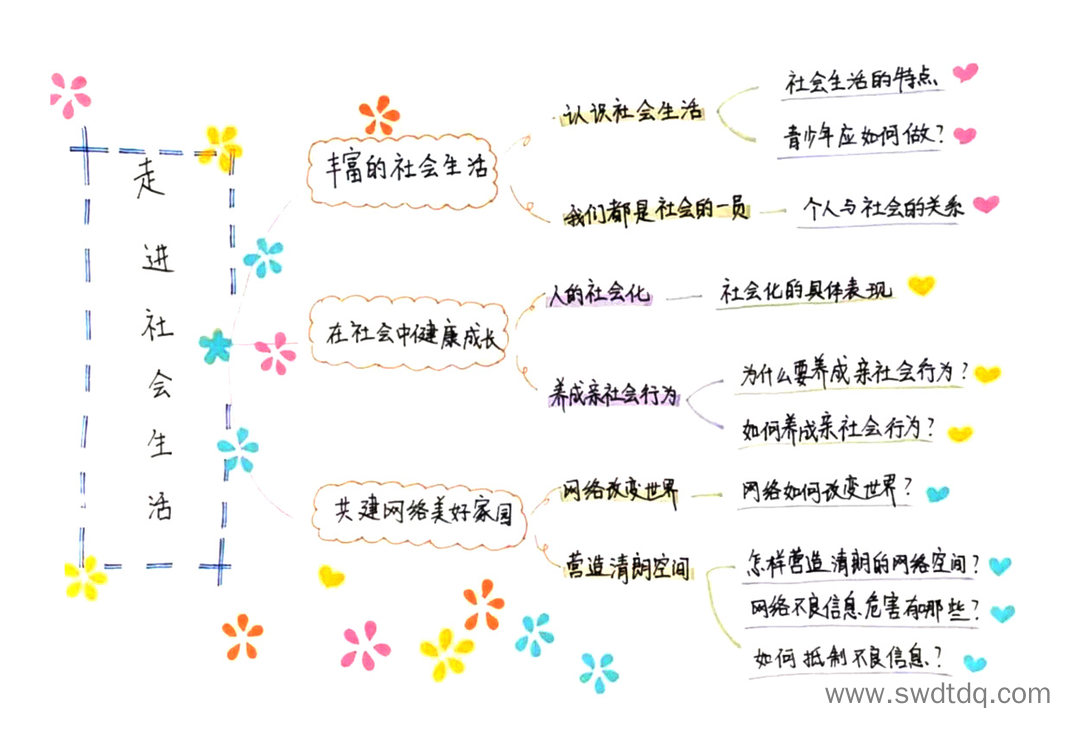 走进社会生活
丰富的社会生活
认识社会生活
社会生活的特点
青少年应如何做?
我们都是社会的一员
个人与社会的关系
在社会中健康成长
人的社会化
社会化的具体表现
养成亲社会行为
为什么要养成亲社会行为?
如何养成亲社会行为?
共建网络美好家园
网络改变世界
网络如何改变世界?
营造清朗空间
怎样营造清朗的网络空间?
网络不良信息危害有哪些?
如何抵制不良信息?
www.swdtdq.com